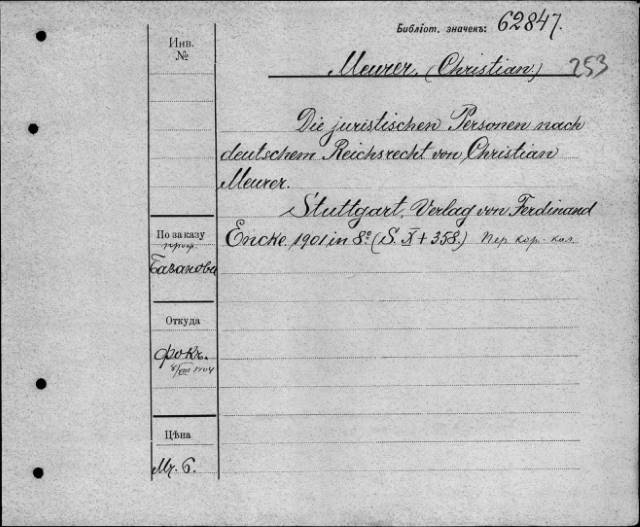 Библіот. значекъ: 62847.
Инв.
№
Meurer, (Christian) 253
Die juristischen Personen nach
deutschem Reichsrecht von Christian
Meurer.
Stuttgart, Verlag von Ferdinand
Encke 1901 in 8º (S. X + 358.) Пер кор. кол.
По заказу
проф.
Базанова
Откуда
Фокъ.
1904
Цѣна
Mr. 6.